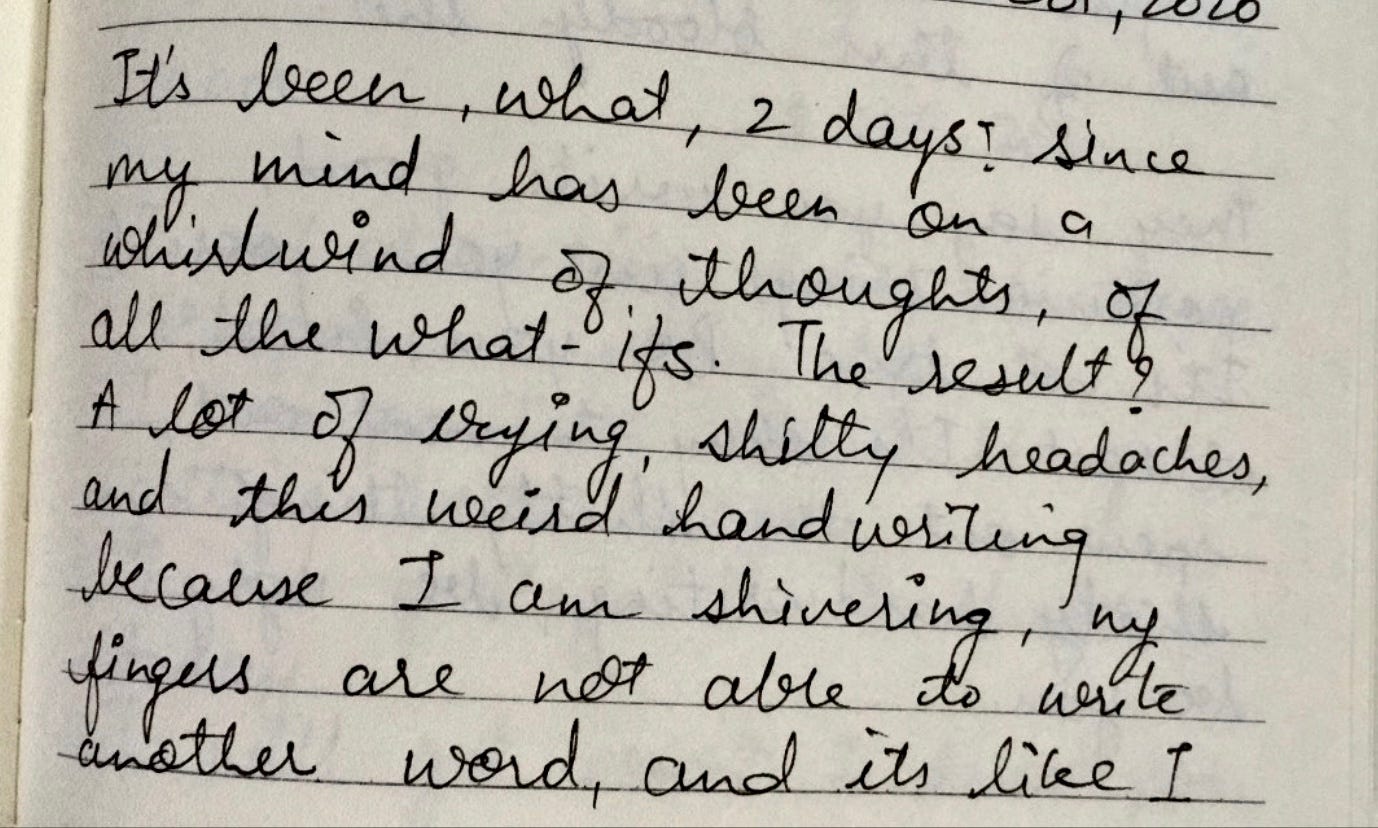 , 2020
It's been, what, 2 days? since
my mind has been on a
whirlwind of thoughts, of
all the what-ifs. The result?
A lot of crying, shitty headaches,
and this weird handwriting
because I am shivering, my
fingers are not able to write
another word, and its like I